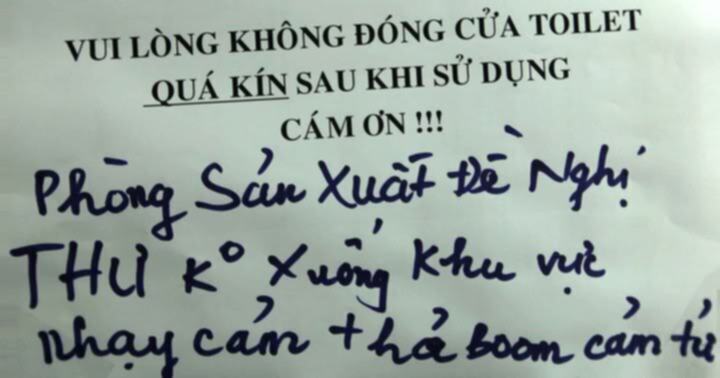 VUI LÒNG KHÔNG ĐÓNG CỬA TOILET
QUÁ KÍN SAU KHI SỬ DỤNG
CÁM ƠN !!!
Phòng Sản Xuất Đề Nghị
THƯ Kº Xuống Khu vực
nhạy cảm + hả Boom cảm tử